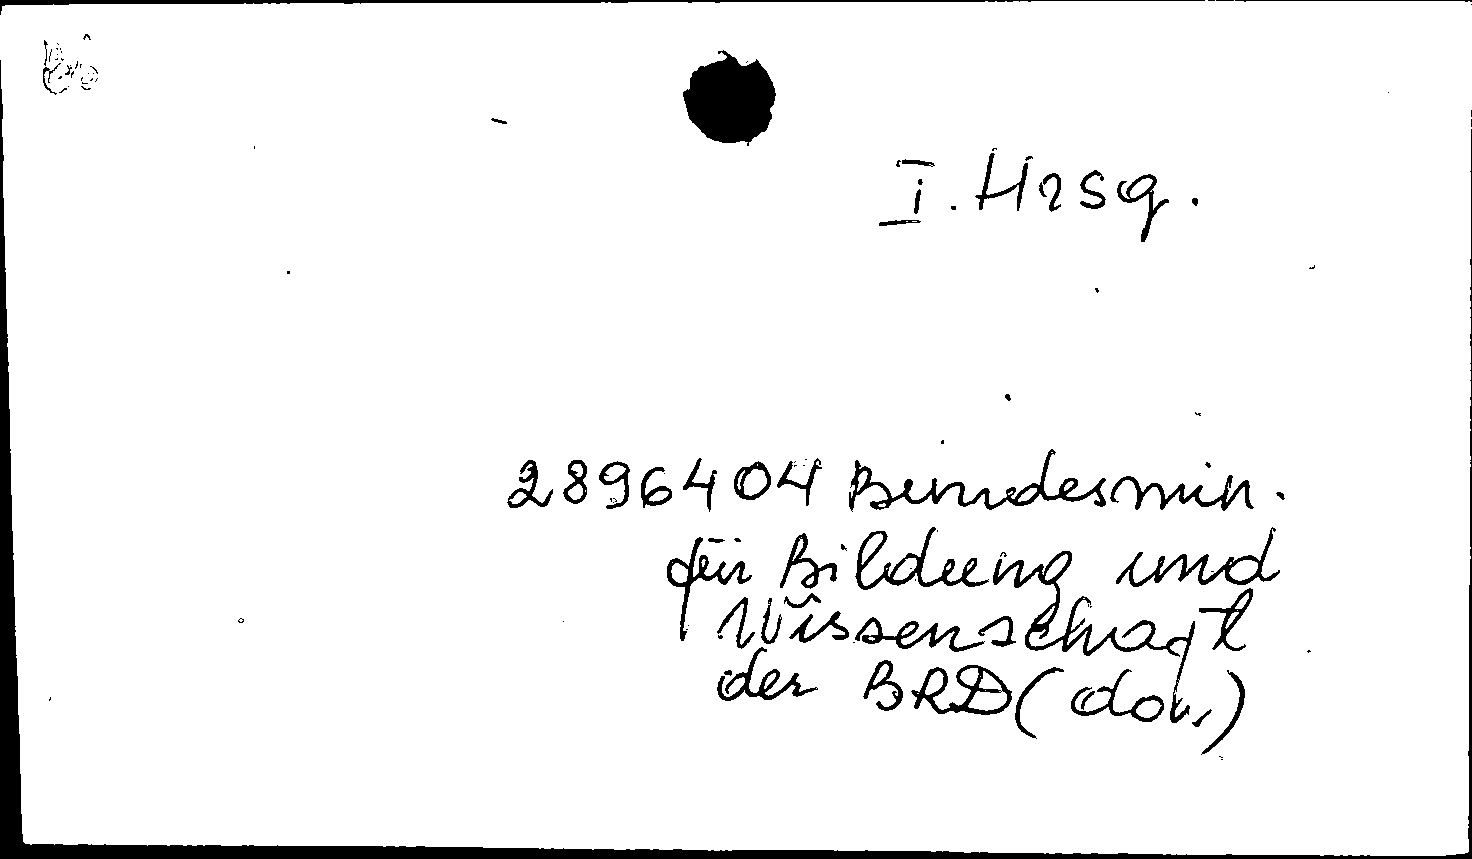 I. Hrsg.
2896404 Bundesmin.
für Bildung und
Wissenschaft
der BRD (dov.)